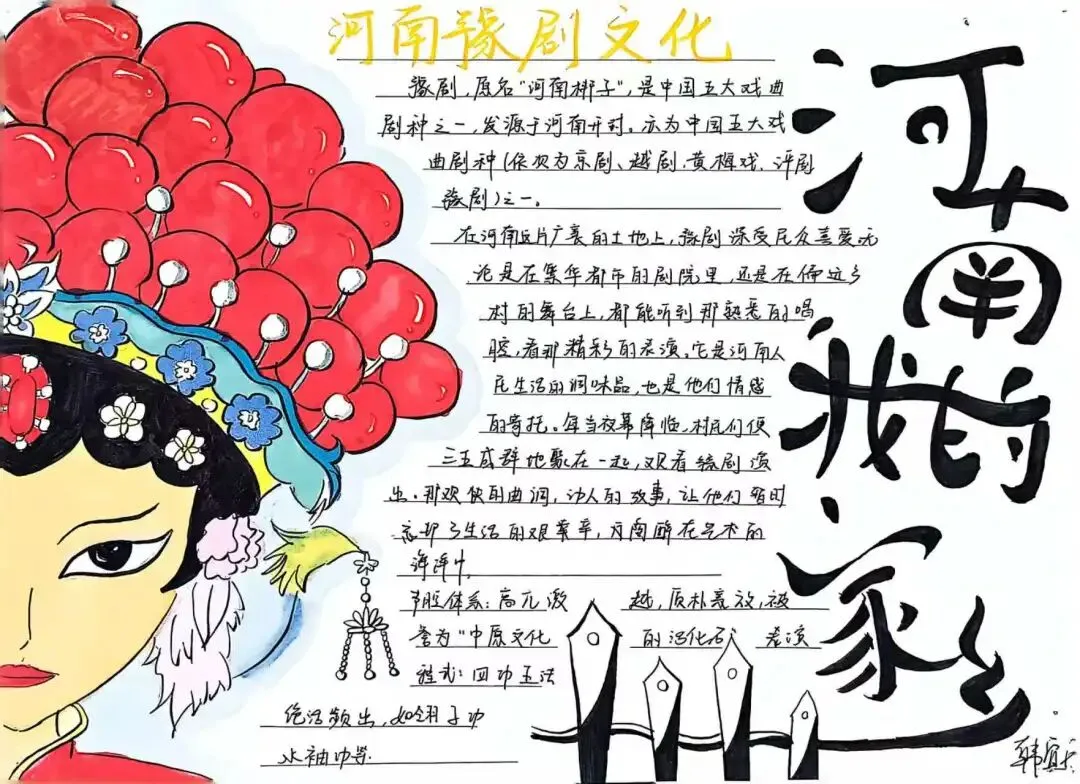 河南豫剧文化
豫剧,原名"河南梆子",是中国五大戏曲
剧种之一,发源于河南开封。亦为中国五大戏
曲剧种(依次为京剧、越剧、黄梅戏、评剧
豫剧)之一。
在河南这片广袤的土地上,豫剧深受民众喜爱无
论是在集华都市的剧院里,还是在偏远乡
村的舞台上,都能听到那熟悉的唱
腔,看那精彩的表演。它是河南人
民生活的调味品,也是他们情感
的寄托。每当夜幕降临,村民们便
三五成群地聚在一起,观看豫剧演
出。那欢快的曲调,动人的故事,让他们暂时
忘却了生活的艰辛,陶醉在艺术的
海洋中。
声腔体系:高亢激越,质朴豪放,被
誉为"中原文化的活化石" 表演
程式:四功五法
绝活频出,如翎子功
水袖功等
河南
我的
家乡
韩宜